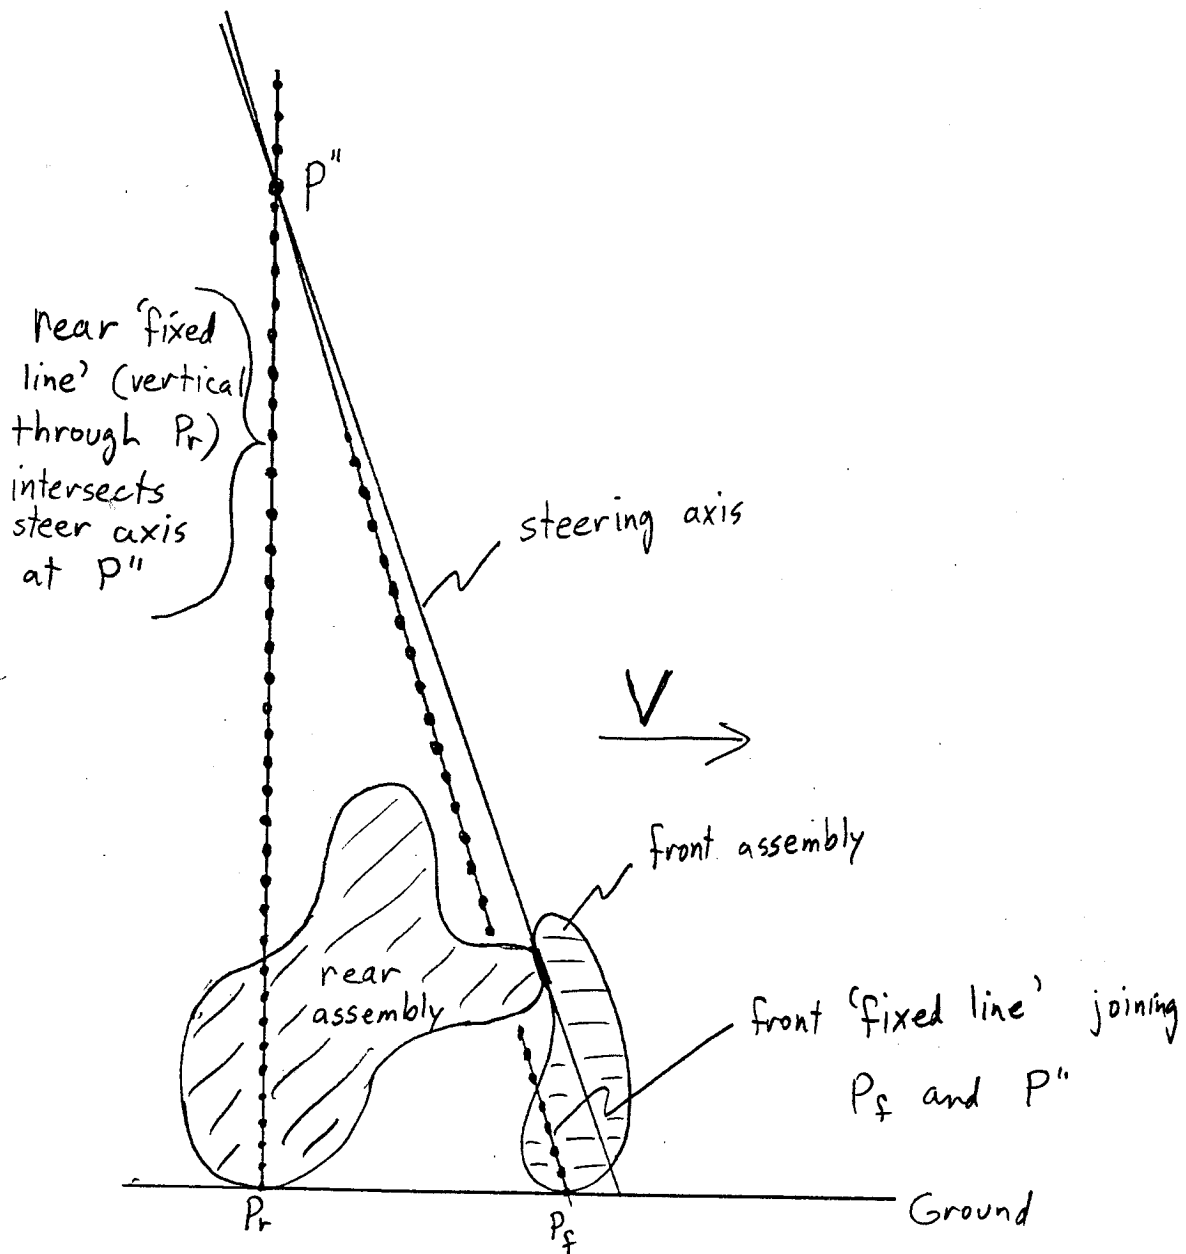 P"
rear 'fixed
line' (vertical
through Pr)
intersects
steer axis
at P"
steering axis
V
front assembly
rear
assembly
front 'fixed line' joining
Pf and P"
Pr
Pf
Ground